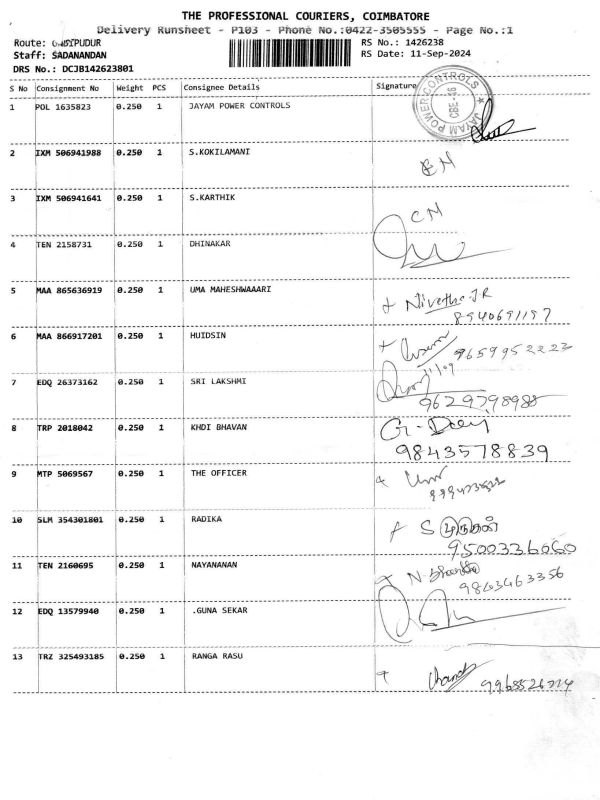 THE PROFESSIONAL COURIERS, COIMBATORE
Delivery Runsheet - P103 - Phone No.:0422-3505555 - Page No.:1
Route: RS No.: 1426238
Staff: SADANANDAN RS Date: 11-Sep-2024
DRS No.: DCJB142623801
S No Consignment No Weight PCS Consignee Details Signature
JAYAM POWER CONTROLS
1 POL 1635823 0.250 1 JAYAM POWER CONTROLS
2 IXM 506941988 0.250 1 S.KOKILAMANI
3 IXM 506941641 0.250 1 S.KARTHIK CM
4 TEN 2158731 0.250 1 DHINAKAR
5 MAA 865636919 0.250 1 UMA MAHESHWAAARI Nivetha J R
8940691197
6 MAA 866917201 0.250 1 HUIDSIN 9659952223
7 EDQ 26373162 0.250 1 SRI LAKSHMI
9629798988
8 TRP 2018042 0.250 1 KHDI BHAVAN
9843578839
9 MTP 5069567 0.250 1 THE OFFICER
10 SLM 354301801 0.250 1 RADIKA
9500336060
11 TEN 2160695 0.250 1 NAYANANAN
9843463356
12 EDQ 13579940 0.250 1 .GUNA SEKAR
13 TRZ 325493185 0.250 1 RANGA RASU